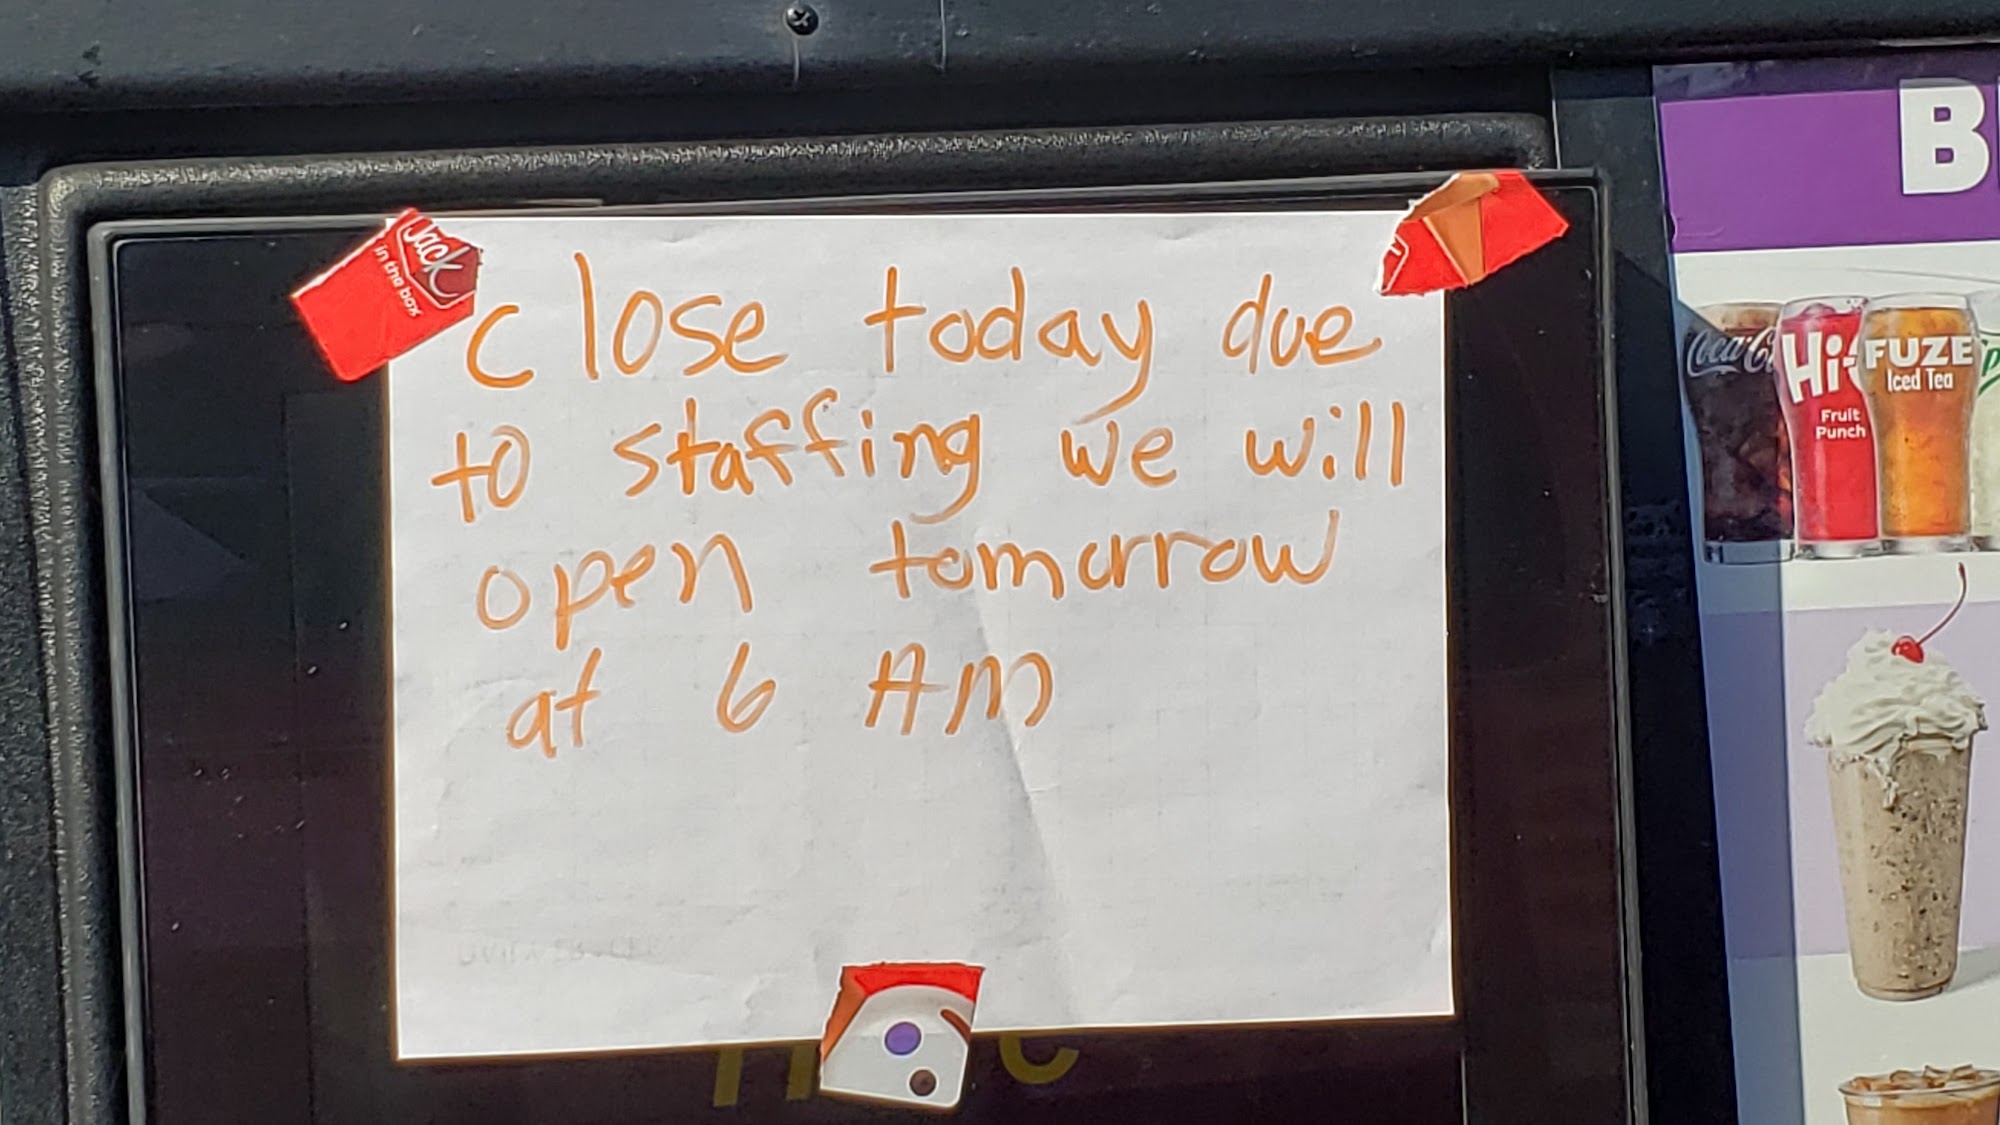 Jack
in the box
close today due
to staffing we will
open tomorrow
at 6 AM
B
Coca-C
Hi-
Fruit
Punch
FUZE
Iced Tea